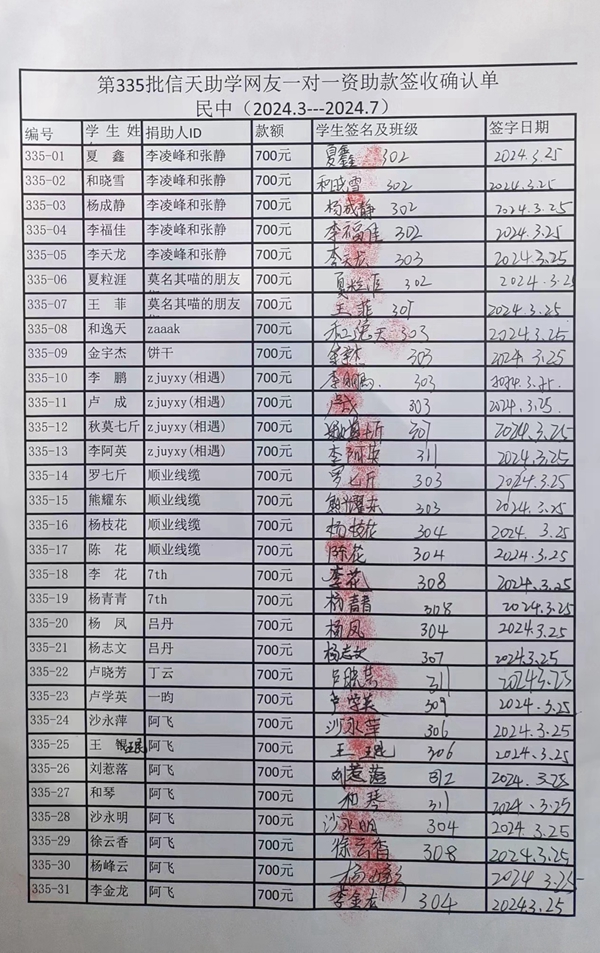 第335批信天助学网友一对一资助款签收确认单
民中（2024.3---2024.7）
编号 学生姓 捐助人ID 款额 学生签名及班级 签字日期
335-01 夏 鑫 李凌峰和张静 700元 夏鑫 302 2024.3.25
335-02 和晓雪 李凌峰和张静 700元 和晓雪 302 2024.3.25
335-03 杨成静 李凌峰和张静 700元 杨成静 302 2024.3.25
335-04 李福佳 李凌峰和张静 700元 李福佳 302 2024.3.25
335-05 李天龙 李凌峰和张静 700元 李天龙 303 2024.3.25
335-06 夏粒涯 莫名其喵的朋友 700元 夏粒涯 302 2024.3.25
335-07 王 菲 莫名其喵的朋友 700元 王菲 307 2024.3.25
335-08 和逸天 zaaak 700元 和逸天 303 2024.3.25
335-09 金宇杰 饼干 700元 303 2024.3.25
335-10 李 鹏 zjuyxy(相遇) 700元 李鹏 303 2024.3.25.
335-11 卢 成 zjuyxy(相遇) 700元 卢成 303 2024.3.25.
335-12 秋莫七斤 zjuyxy(相遇) 700元 秋莫七斤 307 2024.3.25
335-13 李阿英 zjuyxy(相遇) 700元 李阿英 311 2024.3.25
335-14 罗七斤 顺业线缆 700元 罗七斤 303 2024.3.25
335-15 熊耀东 顺业线缆 700元 熊耀东 303 2024.3.25
335-16 杨枝花 顺业线缆 700元 杨枝花 304 2024.3.25
335-17 陈 花 顺业线缆 700元 陈花 304 2024.3.25
335-18 李 花 7th 700元 李花 308 2024.3.25
335-19 杨青青 7th 700元 杨青青 308 2024.3.25
335-20 杨 凤 吕丹 700元 杨凤 304 2024.3.25
335-21 杨志文 吕丹 700元 杨志文 307 2024.3.25
335-22 卢晓芳 丁云 700元 卢晓芳 311 2024.3.25
335-23 卢学英 一昀 700元 卢学英 309 2024.3.25
335-24 沙永萍 阿飞 700元 沙永萍 306 2024.3.25
335-25 王 阿飞 700元 王 306 2024.3.25
335-26 刘惹落 阿飞 700元 刘惹落 312 2024.3.25
335-27 和琴 阿飞 700元 和琴 311 2024.3.25
335-28 沙永明 阿飞 700元 沙永明 304 2024.3.25
335-29 徐云香 阿飞 700元 徐云香 308 2024.3.25
335-30 杨峰云 阿飞 700元 2024 3.25
335-31 李金龙 阿飞 700元 李金龙 304 2024.3.25